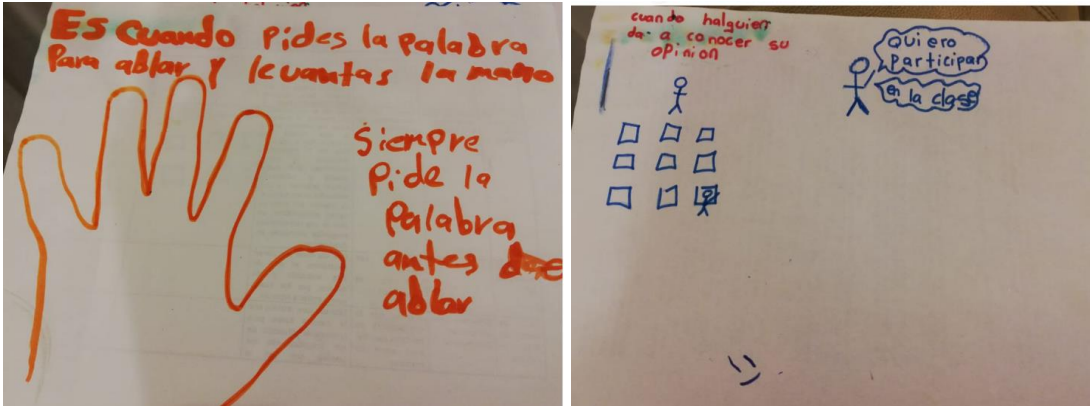 Es cuando pides la palabra
Para ablar y levantas la mano
Siempre
pide la
palabra
antes de
ablar
cuando halguien
da a conocer su
opinion
Quiero
participar
en la clase